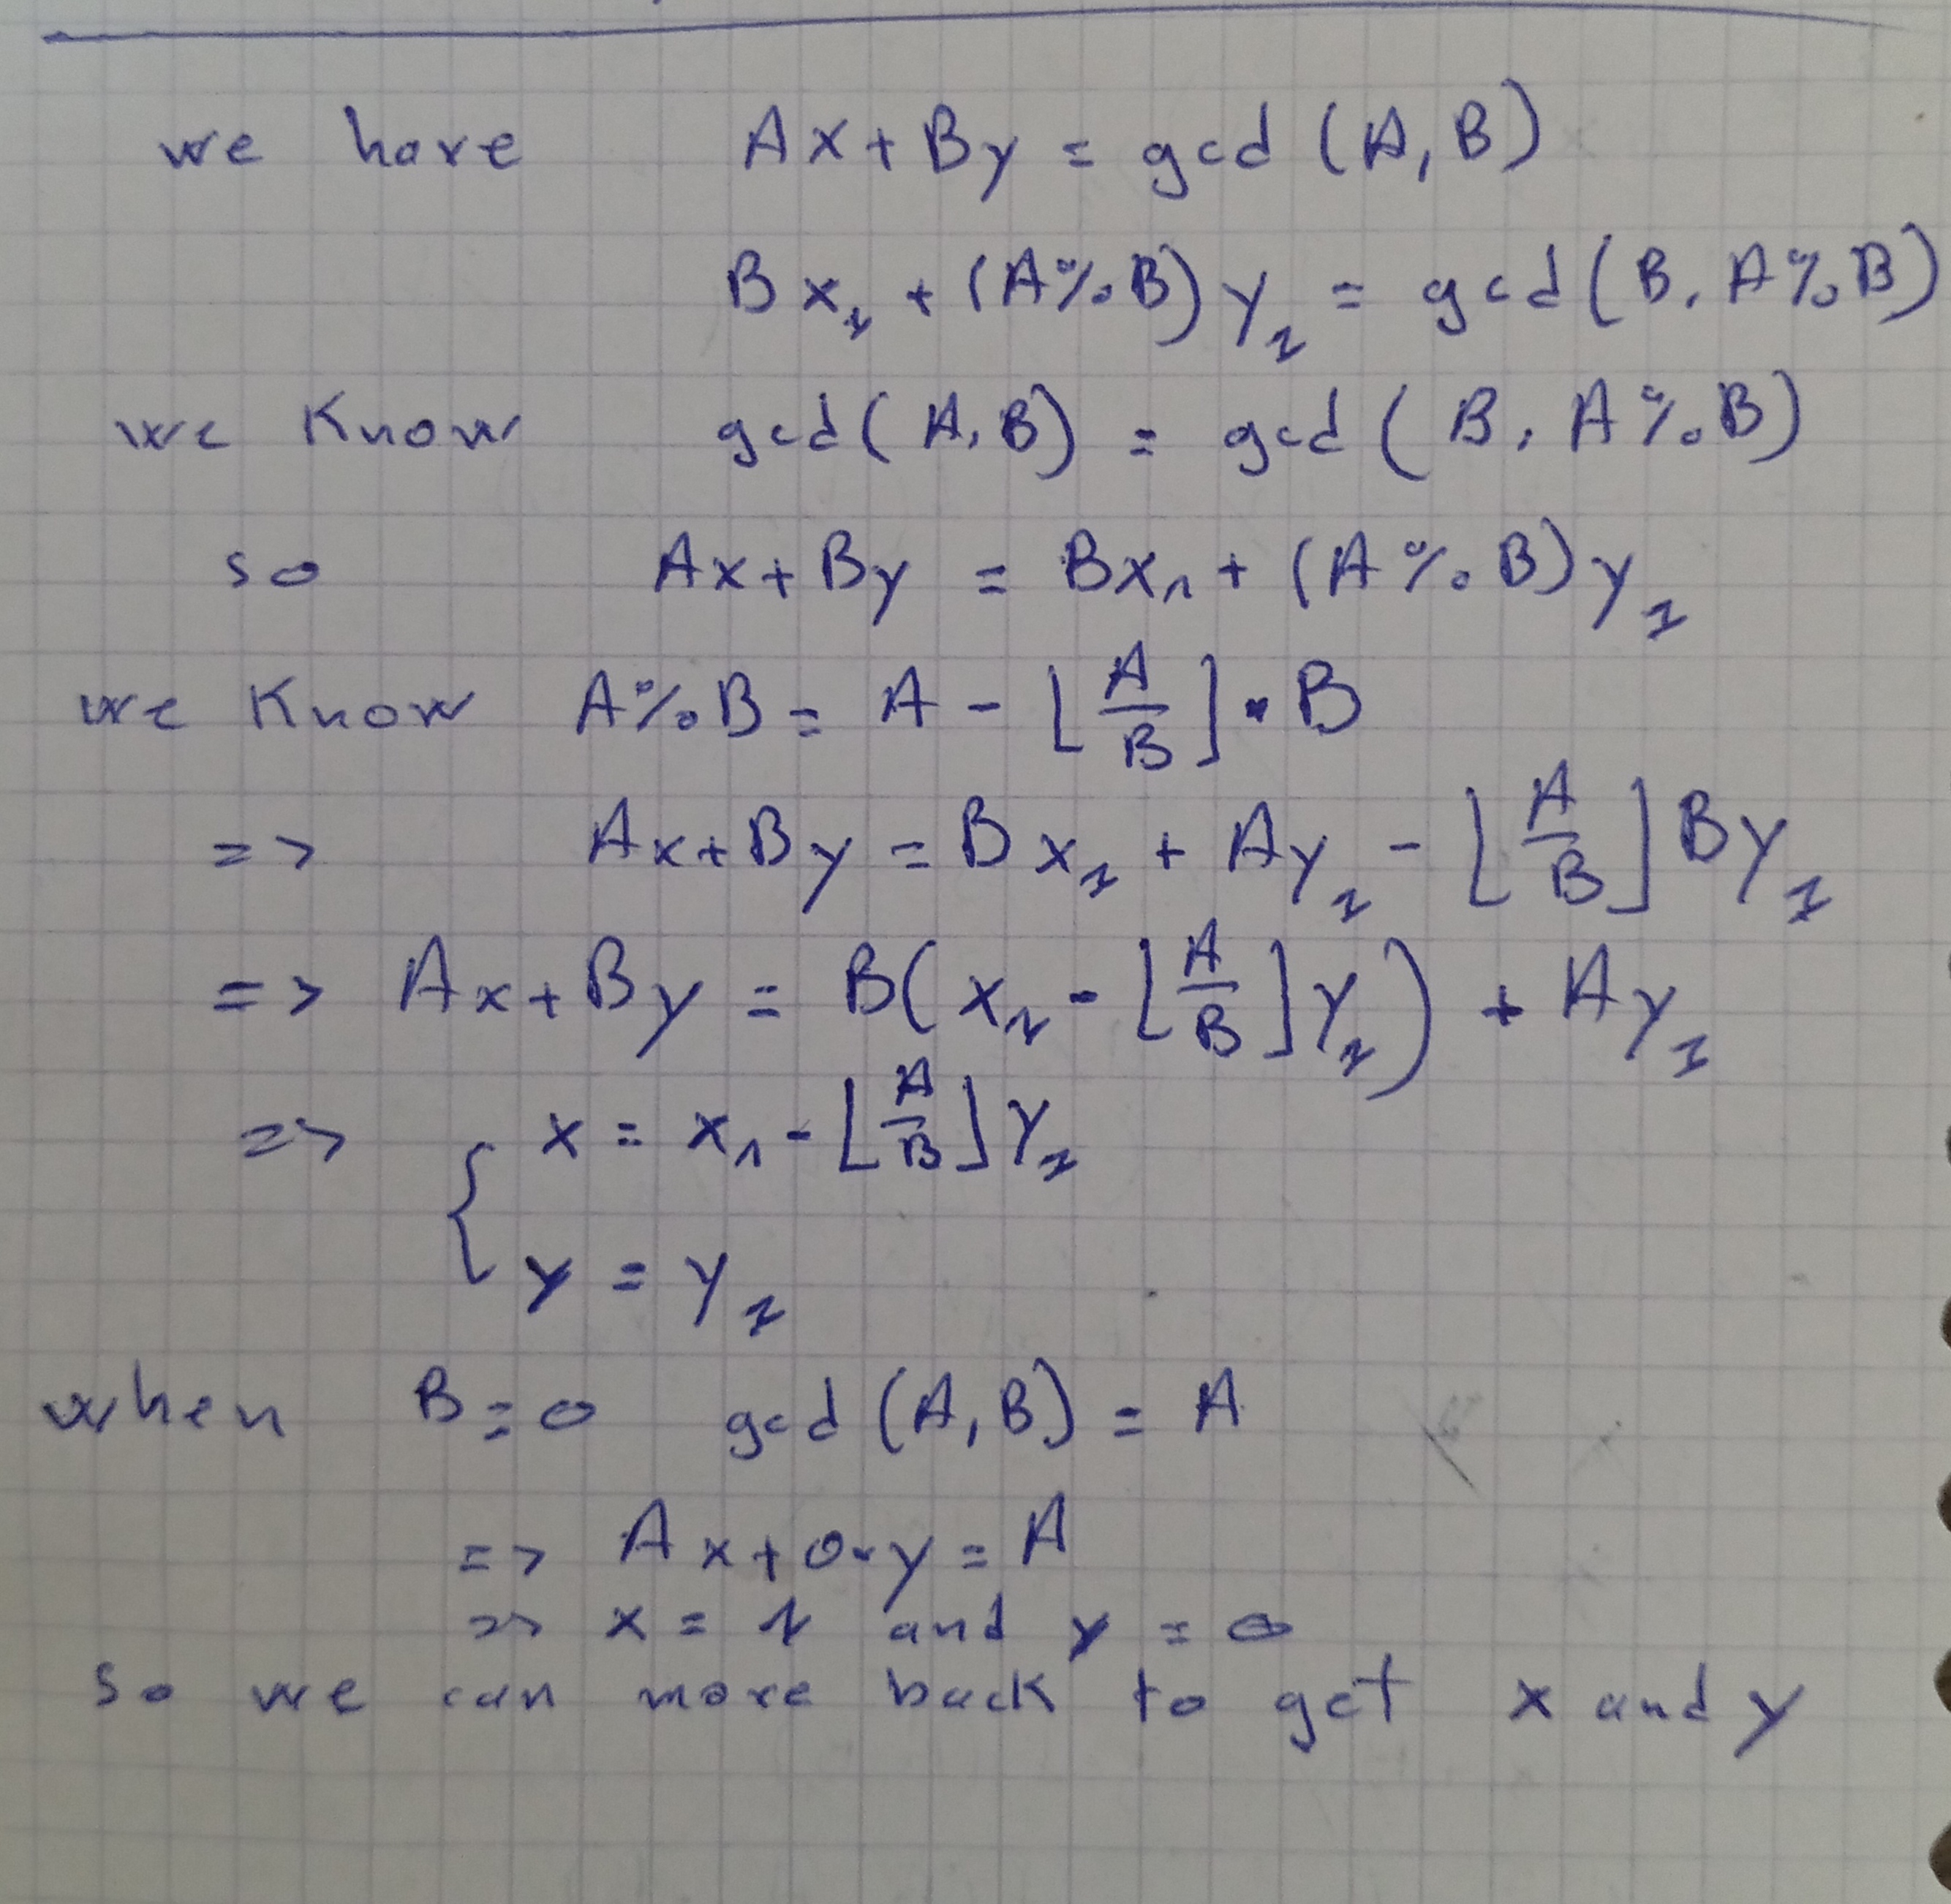 we have Ax + By = gcd (A, B)
Bx₁ + (A%B) y₁ = gcd (B, A%B)
we Know gcd (A, B) = gcd ( B, A%B)
so Ax + By = Bx₁ + (A%B) y₁
we Know A%B = A - ⌊A/B⌋ • B
=> Ax + By = Bx₁ + Ay₁ - ⌊A/B⌋ By₁
=> Ax + By = B(x₁ - ⌊A/B⌋ y₁) + Ay₁
=> { x = x₁ - ⌊A/B⌋ y₁
y = y₁
when B = 0 gcd (A, B) = A
=> Ax + 0•y = A
=> x = 1 and y = 0
so we can move back to get x and y